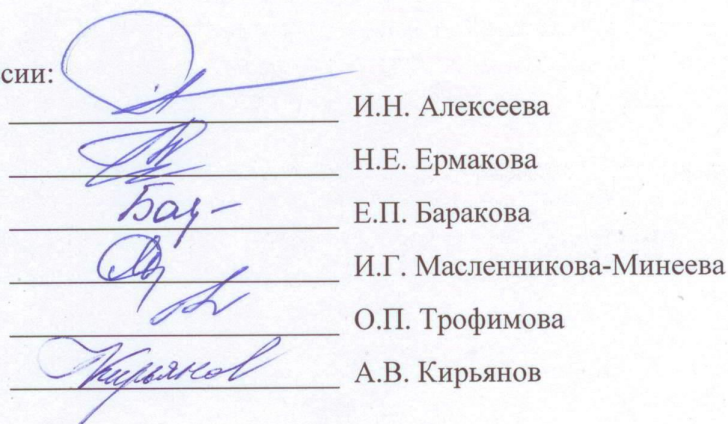 сии:
И.Н. Алексеева
Н.Е. Ермакова
Е.П. Баракова
И.Г. Масленникова-Минеева
О.П. Трофимова
Кирьянов А.В. Кирьянов